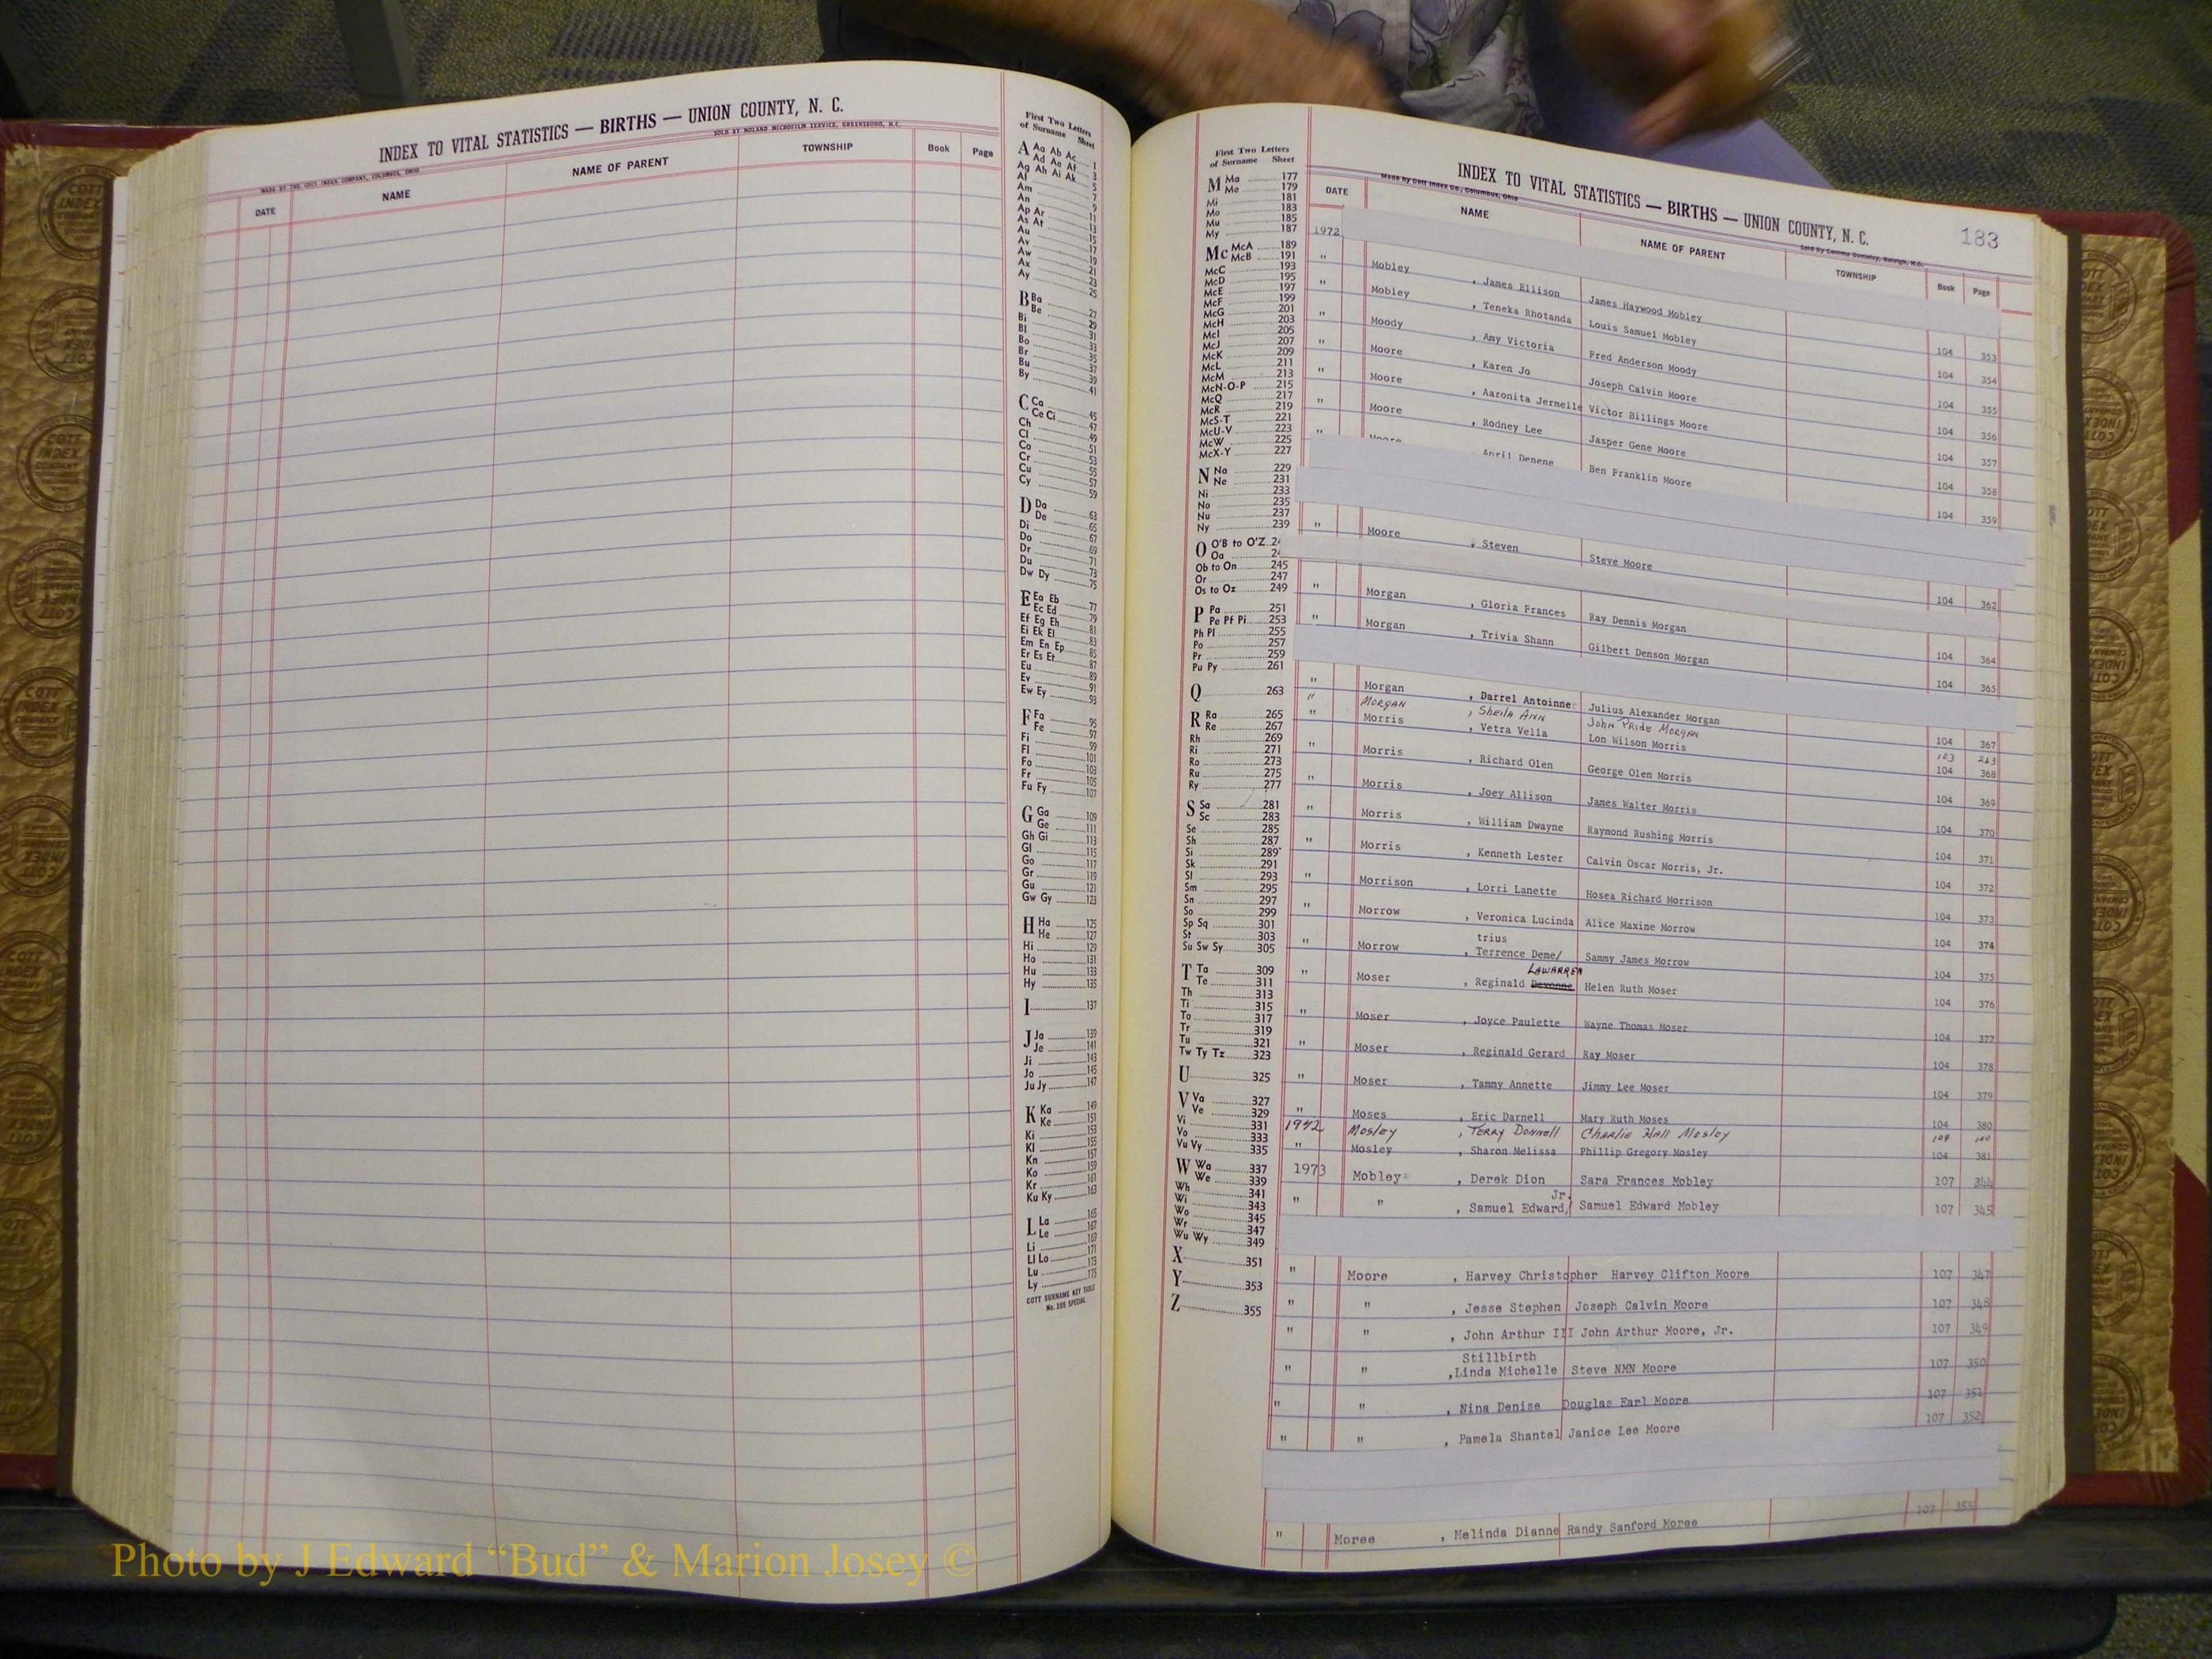 INDEX TO VITAL STATISTICS — BIRTHS — UNION COUNTY, N. C.
MADE BY THE COTT INDEX COMPANY, COLUMBUS, OHIO SOLD BY NOLAND MICROFILM SERVICE, GREENSBORO, N.C.
DATE NAME NAME OF PARENT TOWNSHIP Book Page
First Two Letters
of Surname Sheet
A Aa Ab Ac 1
Ad Ae Af 3
Ag Ah Ai Ak 5
Al 7
Am 9
An 11
Ap Ar 13
As At 15
Au 17
Av 19
Aw 21
Ax 23
Ay 25
B Ba 27
Be 29
Bi 31
Bl 33
Bo 35
Br 37
Bu 39
By 41
C Ca 45
Ce Ci 47
Ch 49
Cl 51
Co 53
Cr 55
Cu 57
Cy 59
D Da 63
De 65
Di 67
Do 69
Dr 71
Du 73
Dw Dy 75
E Ea Eb 77
Ec Ed 79
Ef Eg Eh 81
Ei Ek El 83
Em En Ep 85
Er Es Et 87
Eu 89
Ev 91
Ew Ey 93
F Fa 95
Fe 97
Fi 99
Fl 101
Fo 103
Fr 105
Fu Fy 107
G Ga 109
Ge 111
Gh Gi 113
Gl 115
Go 117
Gr 119
Gu 121
Gw Gy 123
H Ha 125
He 127
Hi 129
Ho 131
Hu 133
Hy 135
I 137
J Ja 139
Je 141
Ji 143
Jo 145
Ju Jy 147
K Ka 149
Ke 151
Ki 153
Kl 155
Kn 157
Ko 159
Kr 161
Ku Ky 163
L La 165
Le 167
Li 169
Ll Lo 171
Lu 173
Ly 175
COTT SURNAME KEY TABLE
No. 355 SPECIAL
First Two Letters
of Surname Sheet
M Ma 177
Me 179
Mi 181
Mo 183
Mu 185
My 187
Mc McA 189
McB 191
McC 193
McD 195
McE 197
McF 199
McG 201
McH 203
McI 205
McJ 207
McK 209
McL 211
McM 213
McN-O-P 215
McQ 217
McR 219
McS-T 221
McU-V 223
McW 225
McX-Y 227
N Na 229
Ne 231
Ni 233
No 235
Nu 237
Ny 239
O O'B to O'Z 24
Oa 24
Ob to On 245
Or 247
Os to Oz 249
P Pa 251
Pe Pf Pi 253
Ph Pl 255
Po 257
Pr 259
Pu Py 261
Q 263
R Ra 265
Re 267
Rh 269
Ri 271
Ro 273
Ru 275
Ry 277
S Sa 281
Sc 283
Se 285
Sh 287
Si 289
Sk 291
Sl 293
Sm 295
Sn 297
So 299
Sp Sq 301
St 303
Su Sw Sy 305
T Ta 309
Te 311
Th 313
Ti 315
To 317
Tr 319
Tu 321
Tw Ty Tz 323
U 325
V Va 327
Ve 329
Vi 331
Vo 333
Vu Vy 335
W Wa 337
We 339
Wh 341
Wi 343
Wo 345
Wr 347
Wu Wy 349
X 351
Y 353
Z 355
INDEX TO VITAL STATISTICS — BIRTHS — UNION COUNTY, N. C. 183
Made by Cott Index Co., Columbus, Ohio
DATE NAME NAME OF PARENT TOWNSHIP Book Page
1972
" Mobley , James Ellison James Haywood Mobley 104 353
" Mobley , Teneka Rhotanda Louis Samuel Mobley 104 354
" Moody , Amy Victoria Fred Anderson Moody 104 355
" Moore , Karen Jo Joseph Calvin Moore 104 356
" Moore , Aaronita Jermelle Victor Billings Moore 104 357
" Moore , Rodney Lee Jasper Gene Moore 104 358
" Moore April Denene Ben Franklin Moore 104 359
" Moore , Steven Steve Moore 104 362
" Morgan , Gloria Frances Ray Dennis Morgan 104 364
" Morgan , Trivia Shann Gilbert Denson Morgan 104 365
" Morgan , Darrel Antoinne Julius Alexander Morgan 104 367
" MORGAN , Sheila Ann John Pride Morgan 103 263
" Morris , Vetra Vella Lon Wilson Morris 104 368
" Morris , Richard Olen George Olen Morris 104 369
" Morris , Joey Allison James Walter Morris 104 370
" Morris , William Dwayne Raymond Rushing Morris 104 371
" Morris , Kenneth Lester Calvin Oscar Morris, Jr. 104 372
" Morrison , Lorri Lanette Hosea Richard Morrison 104 373
" Morrow , Veronica Lucinda Alice Maxine Morrow 104 374
trius
" Morrow , Terrence Deme/ Sammy James Morrow 104 375
LAWARREN
" Moser , Reginald Devonne Helen Ruth Moser 104 376
" Moser , Joyce Paulette Wayne Thomas Moser 104 377
" Moser , Reginald Gerard Ray Moser 104 378
" Moser , Tammy Annette Jimmy Lee Moser 104 379
" Moses , Eric Darnell Mary Ruth Moses 104 380
1972 Mosley , Terry Donnell Charlie Hall Mosley 104
" Mosley , Sharon Melissa Phillip Gregory Mosley 104 381
1973 Mobley , Derek Dion Sara Frances Mobley 107 344
Jr.
" " , Samuel Edward,/ Samuel Edward Mobley 107 345
" Moore , Harvey Christopher Harvey Clifton Moore 107 347
" " , Jesse Stephen Joseph Calvin Moore 107 348
" " , John Arthur III John Arthur Moore, Jr. 107 349
Stillbirth
" " ,Linda Michelle Steve NMN Moore 107 350
" " , Nina Denise Douglas Earl Moore 107 351
" " , Pamela Shantel Janice Lee Moore 107 352
107 355
" Moree , Melinda Dianne Randy Sanford Moree
Photo by J Edward “Bud” & Marion Josey ©